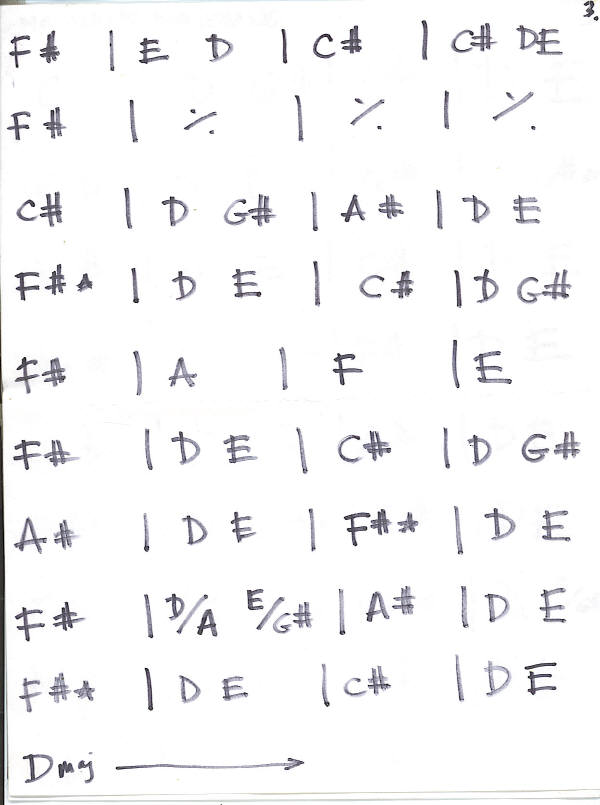 3.
F# | E D | C# | C# DE
F# | ٪ | ٪ | ٪
C# | D G# | A# | D E
F#* | D E | C# | D G#
F# | A | F | E
F# | D E | C# | D G#
A# | D E | F#* | D E
F# | D/A E/G# | A# | D E
F#* | D E | C# | D E
Dmaj →